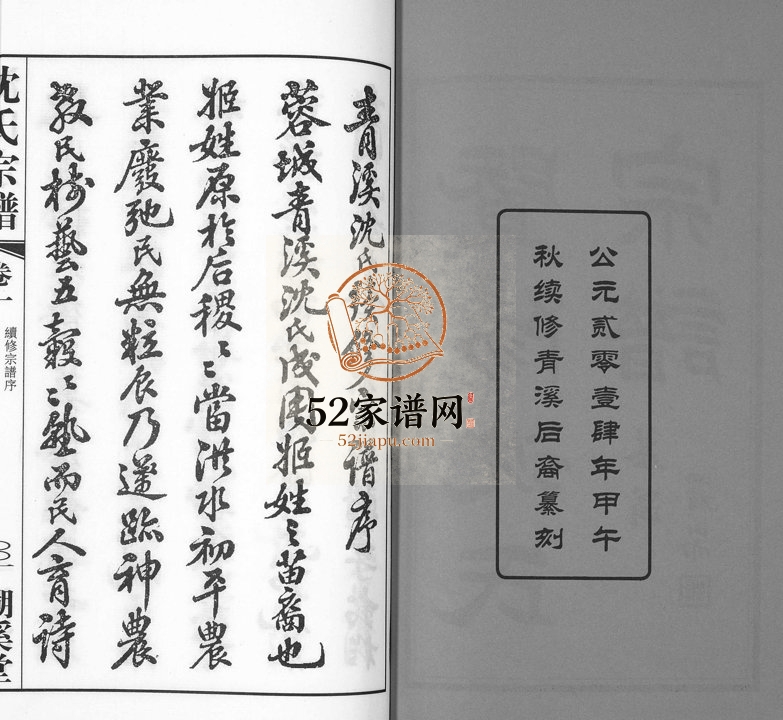 公元贰零壹肆年甲午
秋续修青溪后裔纂刻
青溪沈氏續修宗譜序
蓉城青溪沈氏成國姬姓之苗裔也
姬姓原於后稷稷當洪水初平農
業廢弛民無粒食乃遂蹤神農
教民樹藝五穀穀熟而民人育詩
沈氏宗譜
卷一
續修宗譜序
〇一
52家谱网
52jiapu.com